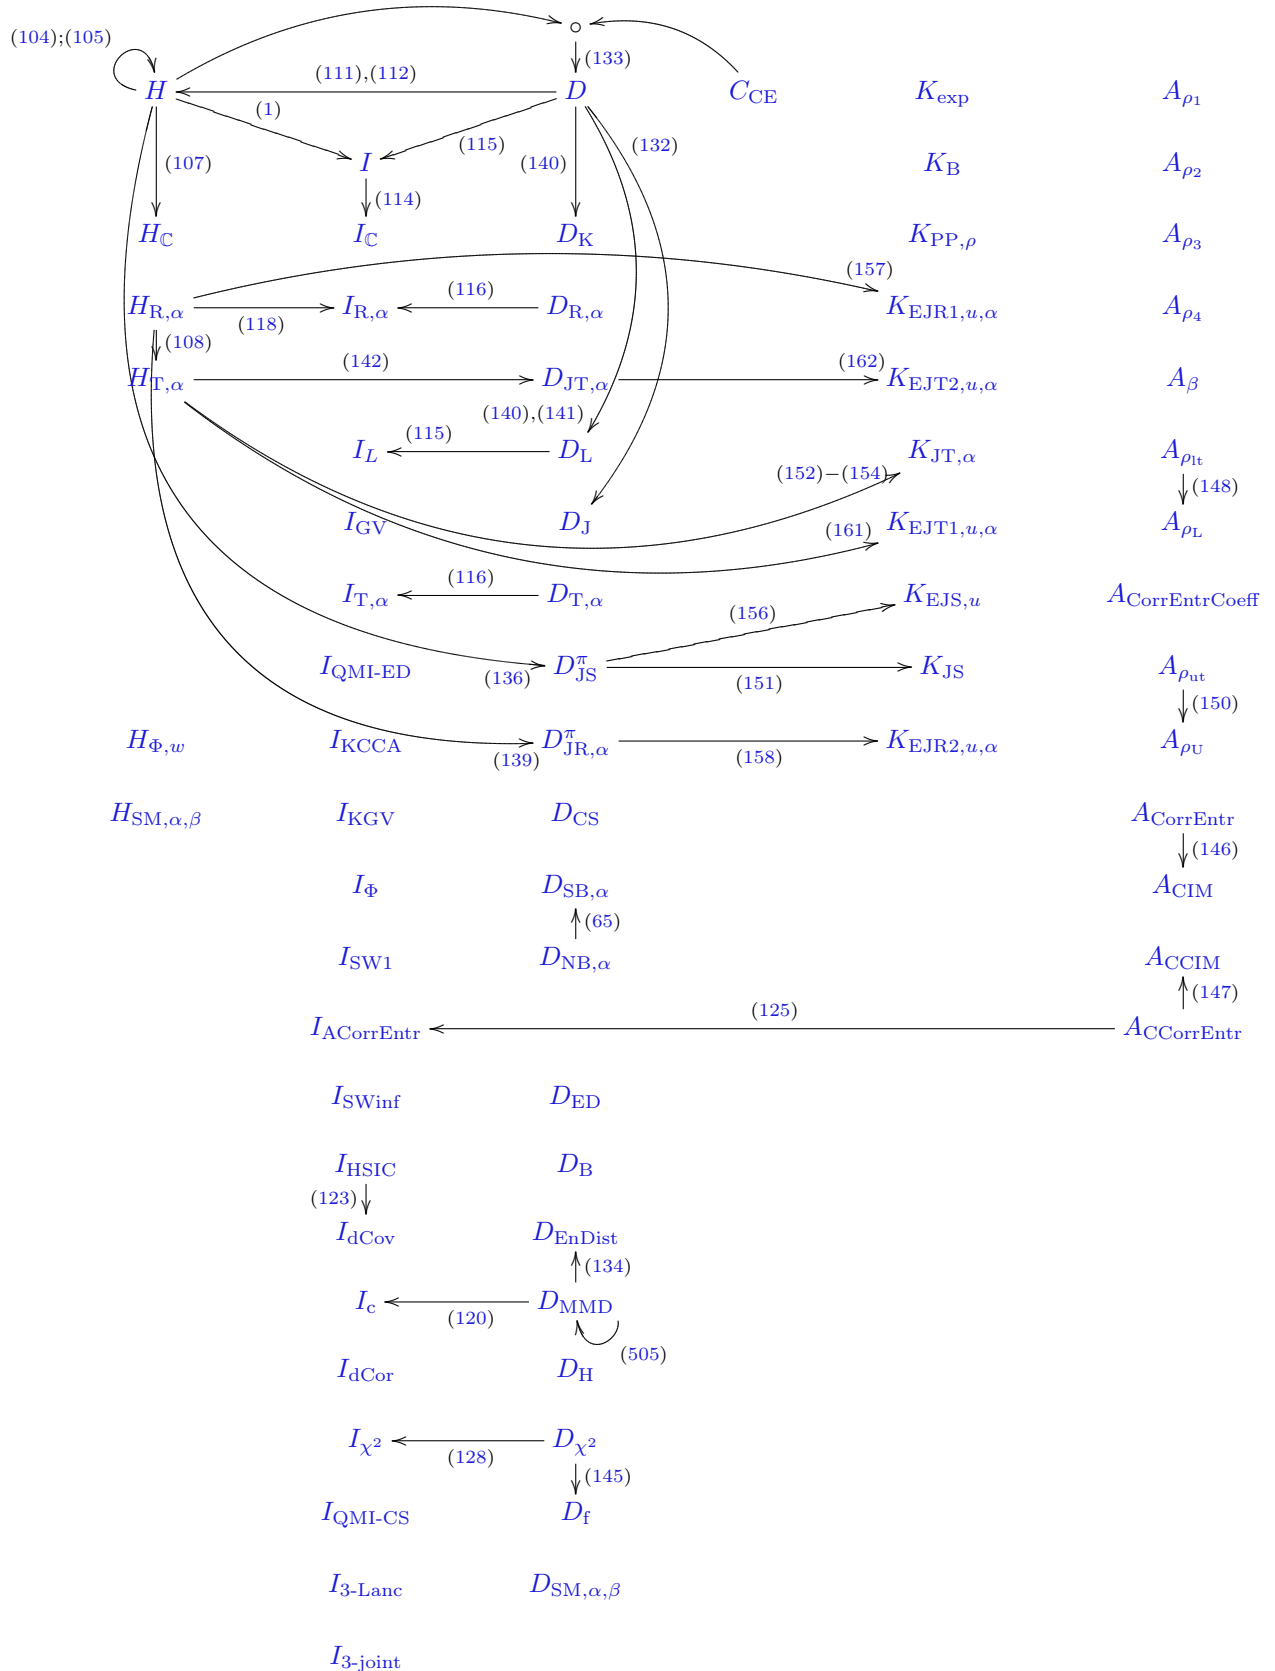 ∘
(104);(105)
(133)
(111),(112)
H D C_CE K_exp A_ρ1
(1) (115) (132)
(107) I (140) K_B A_ρ2
(114)
H_ℂ I_ℂ D_K K_PP,ρ A_ρ3
(157)
(116)
H_R,α I_R,α D_R,α K_EJR1,u,α A_ρ4
(118)
(108)
(142) (162)
H_T,α D_JT,α K_EJT2,u,α A_β
(140),(141)
(115)
I_L D_L K_JT,α A_ρlt
(152)−(154) (148)
I_GV D_J K_EJT1,u,α A_ρL
(161)
(116)
I_T,α D_T,α K_EJS,u A_CorrEntrCoeff
(156)
I_QMI-ED D^π_JS K_JS A_ρut
(136) (151)
(150)
H_Φ,w I_KCCA D^π_JR,α K_EJR2,u,α A_ρU
(139) (158)
H_SM,α,β I_KGV D_CS A_CorrEntr
(146)
I_Φ D_SB,α A_CIM
(65)
I_SW1 D_NB,α A_CCIM
(147)
(125)
I_ACorrEntr A_CCorrEntr
I_SWinf D_ED
I_HSIC D_B
(123)
I_dCov D_EnDist
(134)
I_c D_MMD
(120)
(505)
I_dCor D_H
I_χ² D_χ²
(128)
(145)
I_QMI-CS D_f
I_3-Lanc D_SM,α,β
I_3-joint